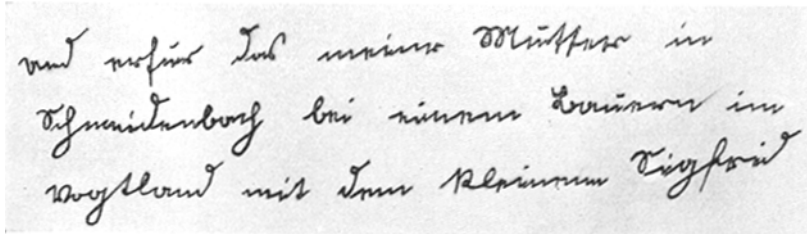 und erfur das meine Mutter in
Schneidenbach bei einem Bauern im
Vogtland mit dem kleinem Sigfrid